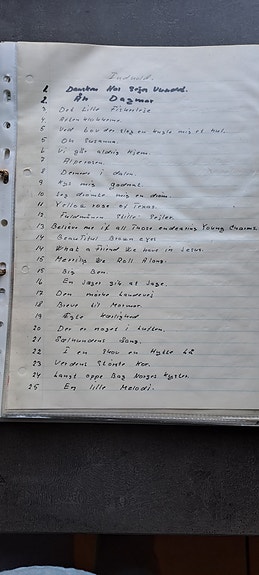 Indhold.
1. Dansken Har Sejr Vundet.
2. Åh Dagmar
3 Det Lille Fiskerleje
4 Aftenklokkerne.
5 Ved bov der slog en kugle mig et hul.
5 Oh Susanna.
6 Vi går aldrig Hjem.
7 Alperosen.
8 Dernere i dalen.
9 Kys mig godnat
10 Jeg drømte mig en drøm.
11 Yellow rose of Texas.
12 Fuldmånen Stille Sejler.
13 Believe me if all Those endearing Young Charms.
14 Beautiful Brown eyes
14 What a Friend We have in Jesus.
15 Merrily We Roll Along.
15 Big Ben.
16 En Jæger gik at Jage.
17 Den mørke Landevej
18 Breve til Mormor.
19 Ægte Kærlighed
20 Der er noget i Luften.
21 Sælhundens Sang.
22 I en Skov en Hytte Lå
23 Verdens Største Kor.
24 Langt oppe Bag Norges Kyster.
25 En lille Melodi.